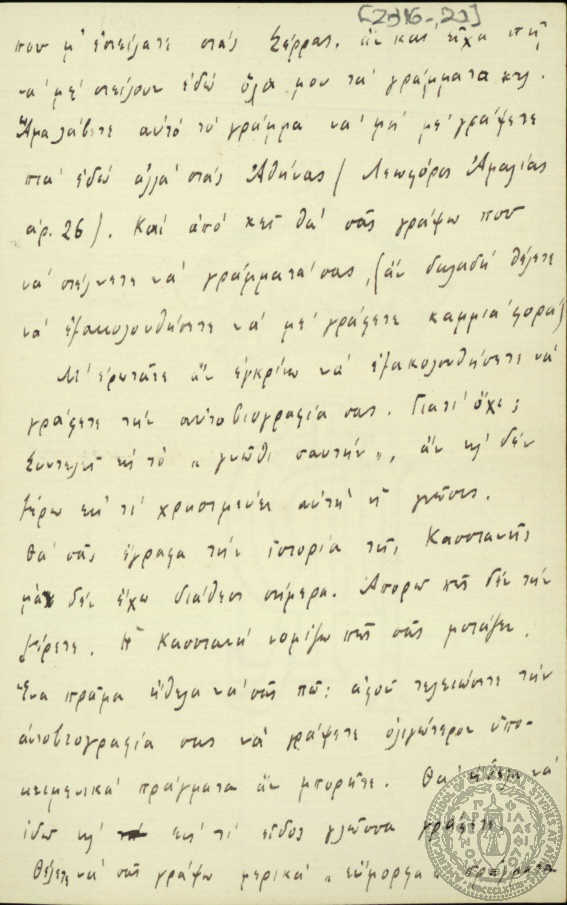 [2316-, 23]
που μ' ἐστείλατε στάς Σέρρας. ἄν καί εἶχα πῆ
νά μέ στείλουν ἐδῶ ὅλα μου τά γράμματα κτλ.
Ἅμα λάβετε αὐτό τό γράμμα νά μή μέ γράψετε
πιά ἐδῶ ἀλλά στάς Ἀθήνας (Λεωφόρος Ἀμαλίας
ἀρ. 26). Καί ἀπό κεῖ θά σᾶς γράψω που
νά στείλνετε νά γράμματά σας, (ἄν δηλαδή θέλετε
νά ἐξακολουθήσετε νά μέ γράφετε καμμιά φορά)
Μ' ἐρωτᾶτε ἄν ἐγκρίνω νά ἐξακολουθήσετε νά
γράφετε τήν αὐτοβιογραφία σας. Γιατί ὄχι;
Συντελεῖ εἰς τό „ γνῶθι σαυτήν „, ἄν κι' δέν
ξέρω εἰς τί χρησιμεύει αὐτή ἡ γνῶσις.
Θά σᾶς ἔγραφα τήν ἱστορία τῆς Κασσιανῆς
μά δέν ἔχω διάθεσι σήμερα. Ἀπορῶ πῶς δέν τήν
ξέρετε. Ἡ Κασσιανή νομίζω πῶς σᾶς μοιάζει.
Ἕνα πρᾶμα ἤθελα νά σᾶς πῶ: ἀφοῦ τελειώσετε τήν
αὐτοβιογραφία σας νά γράψετε ὀλιγώτερον ὑπο-
κειμενικά πράγματα ἄν μπορῆτε. Θά ἤθελα νά
ἰδῶ κι' εἰς τί εἶδος γλῶσσα γράφετε.
Θέλετε νά σᾶς γράψω μερικά „ εὔμορφα „